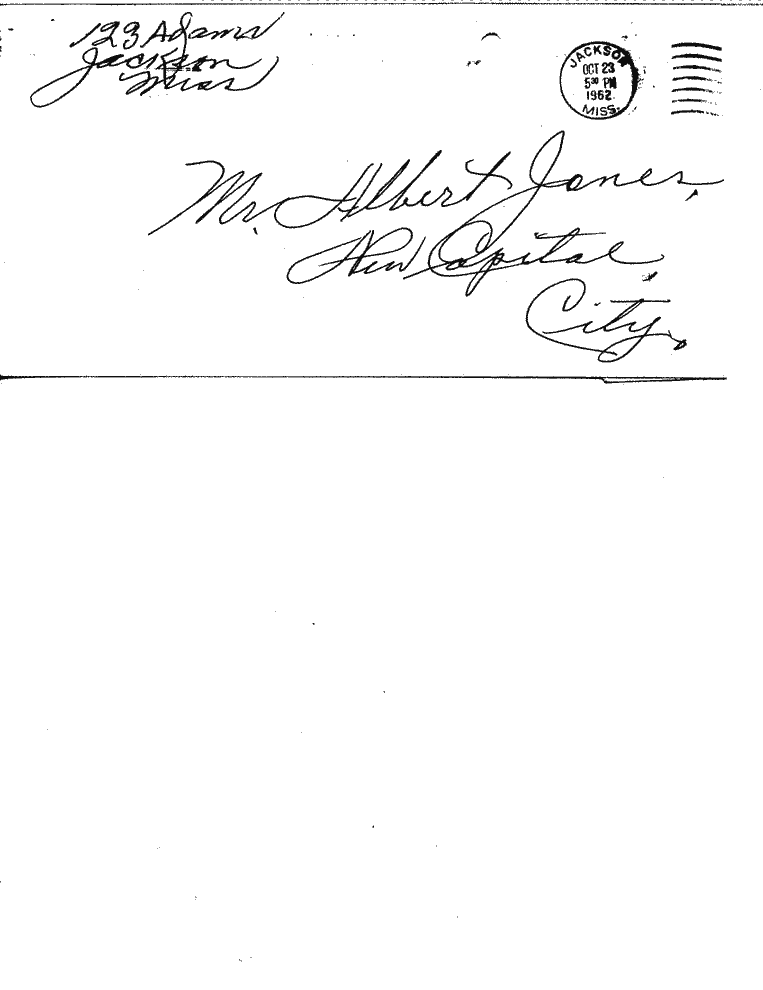 123 Adams
Jackson
Miss
JACKSON
OCT 23
5³⁰ PM
1962
MISS.
Mr. Albert Jones,
New Capital,
City.